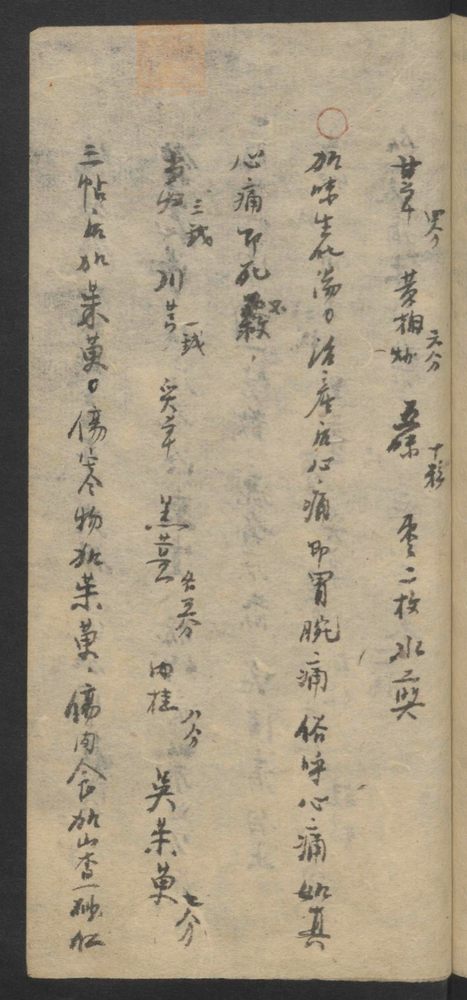 甘草四分 黄柏炒六分 五味十粒 枣二枚水二煎
加味生化湯。治産后心痛即胃脘痛俗呼心痛如真
心痛即死不救
当归三钱 川芎一钱 炙草 黑姜各五分 肉桂八分 吴茱萸七分
三帖后加茱萸。傷寒物加茱萸、傷肉食加山查一砂仁